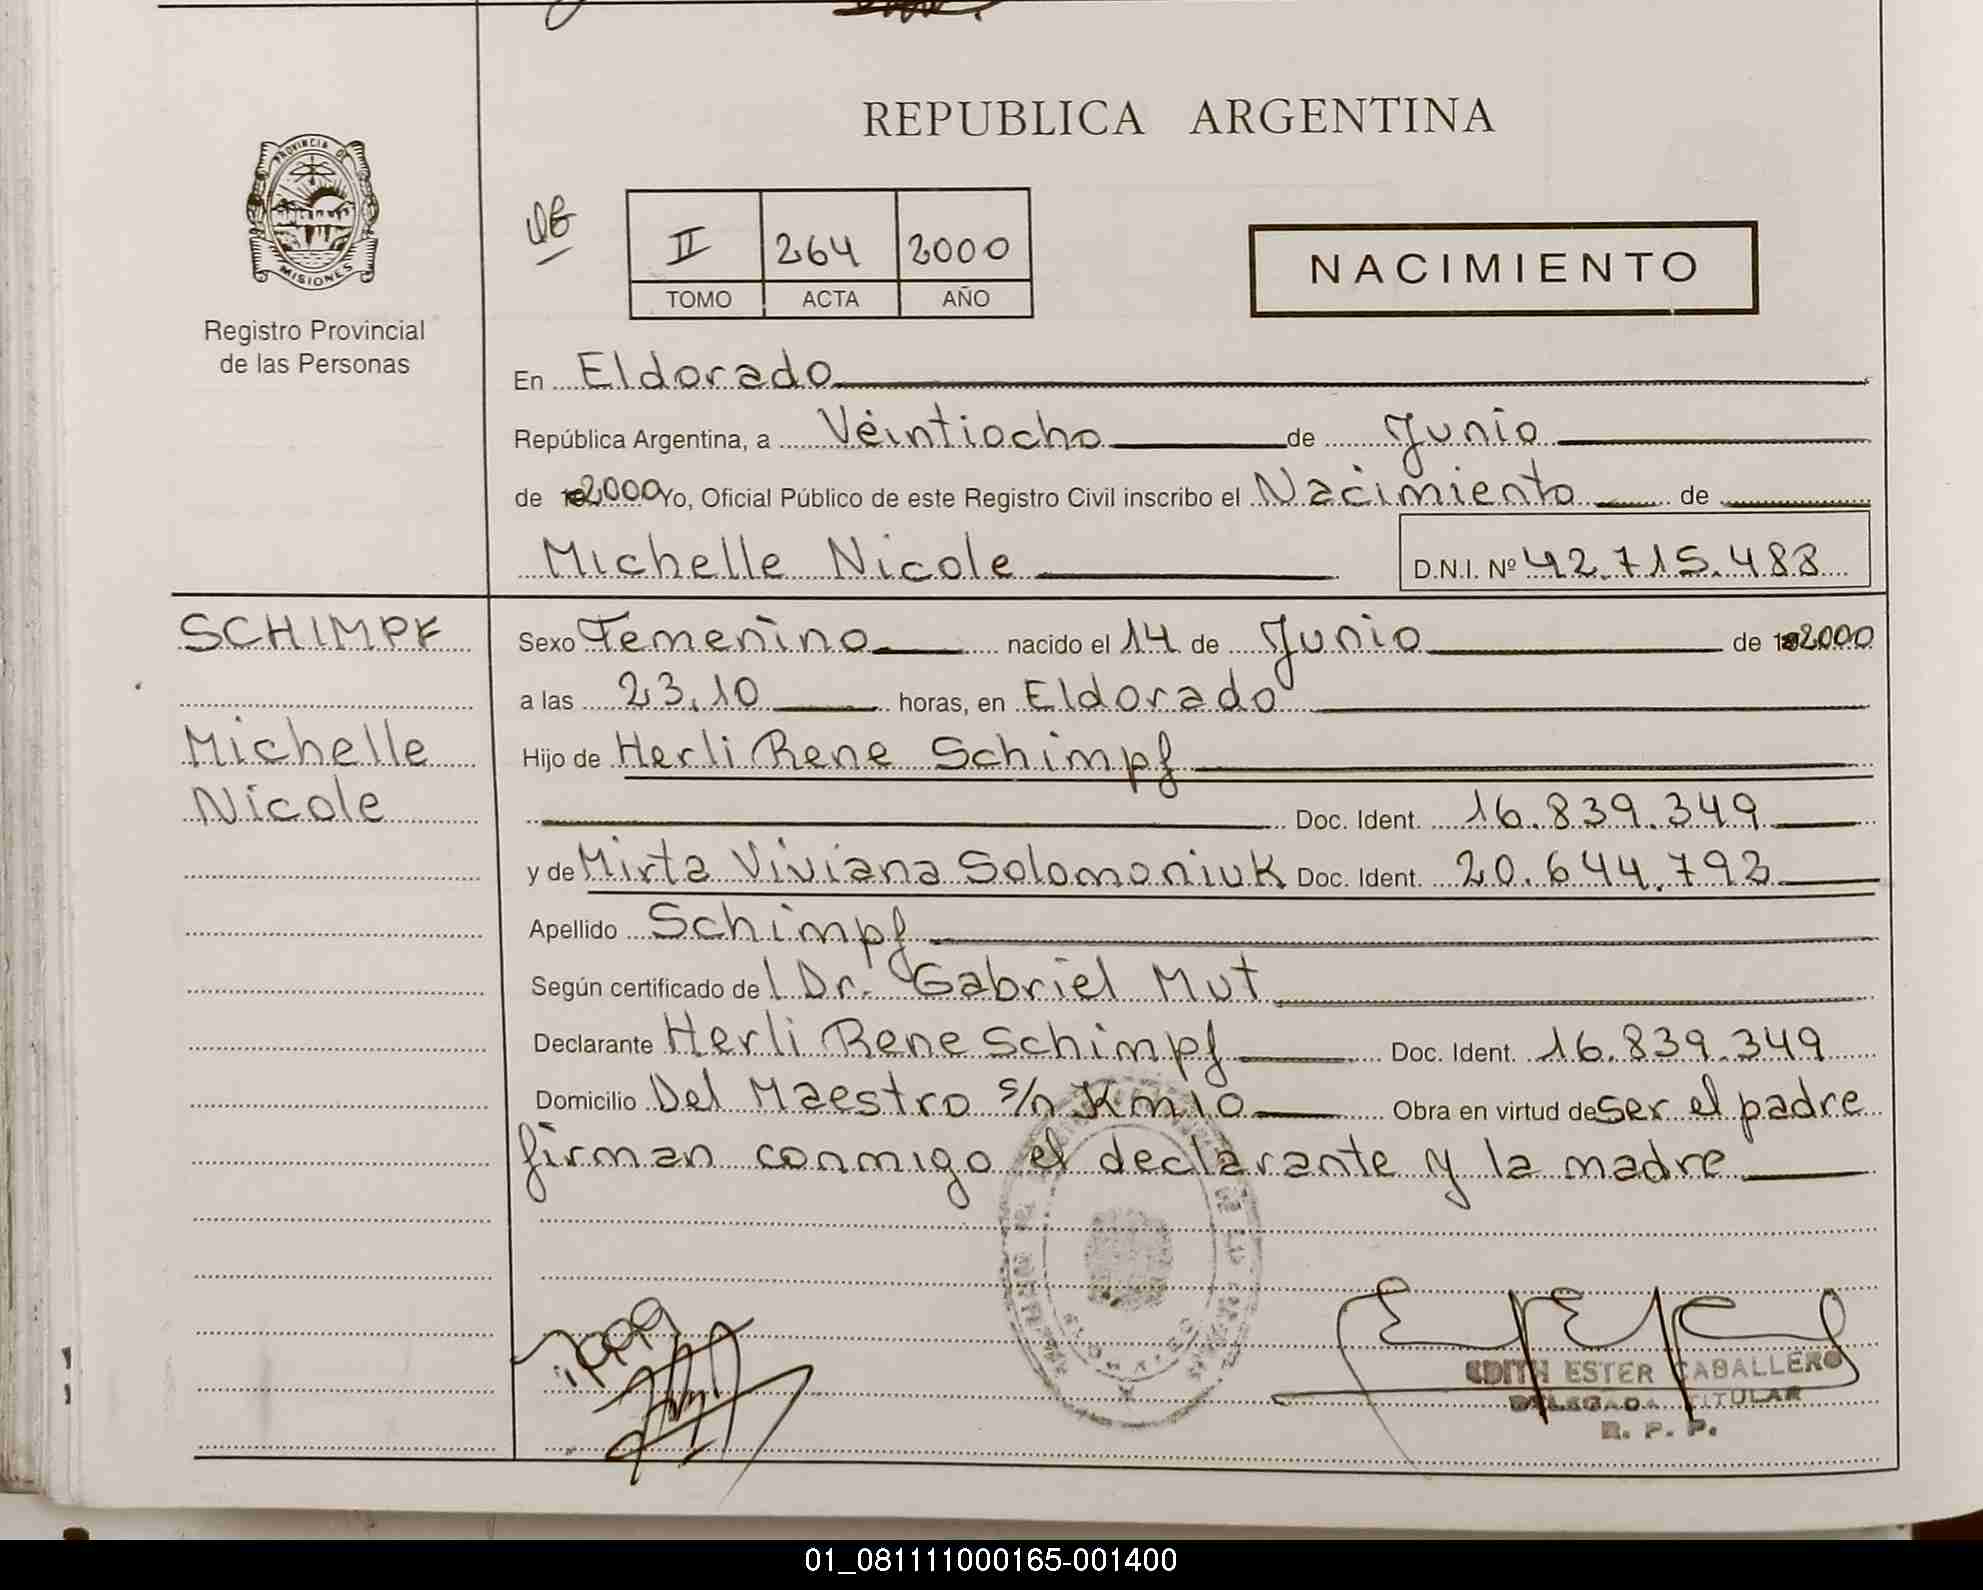 REPUBLICA ARGENTINA
PROVINCIA DE
MISIONES
Registro Provincial
de las Personas
II 264 2000
TOMO ACTA AÑO
NACIMIENTO
En Eldorado
República Argentina, a Veintiocho de Junio
de 2000 Yo, Oficial Público de este Registro Civil inscribo el Nacimiento de
Michelle Nicole D.N.I. Nº 42.715.488
SCHIMPF
Michelle
Nicole
Sexo Femenino nacido el 14 de Junio de 2000
a las 23.10 horas, en Eldorado
Hijo de Herli Rene Schimpf
Doc. Ident. 16.839.349
y de Mirta Viviana Solomoniuk Doc. Ident. 20.644.793
Apellido Schimpf
Según certificado del Dr. Gabriel Mut
Declarante Herli Rene Schimpf Doc. Ident. 16.839.349
Domicilio Del Maestro s/n Km 10 Obra en virtud de ser el padre
firman conmigo el declarante y la madre
EDITH ESTER CABALLERO
DELEGADA TITULAR
R. P. P.
01_081111000165-001400